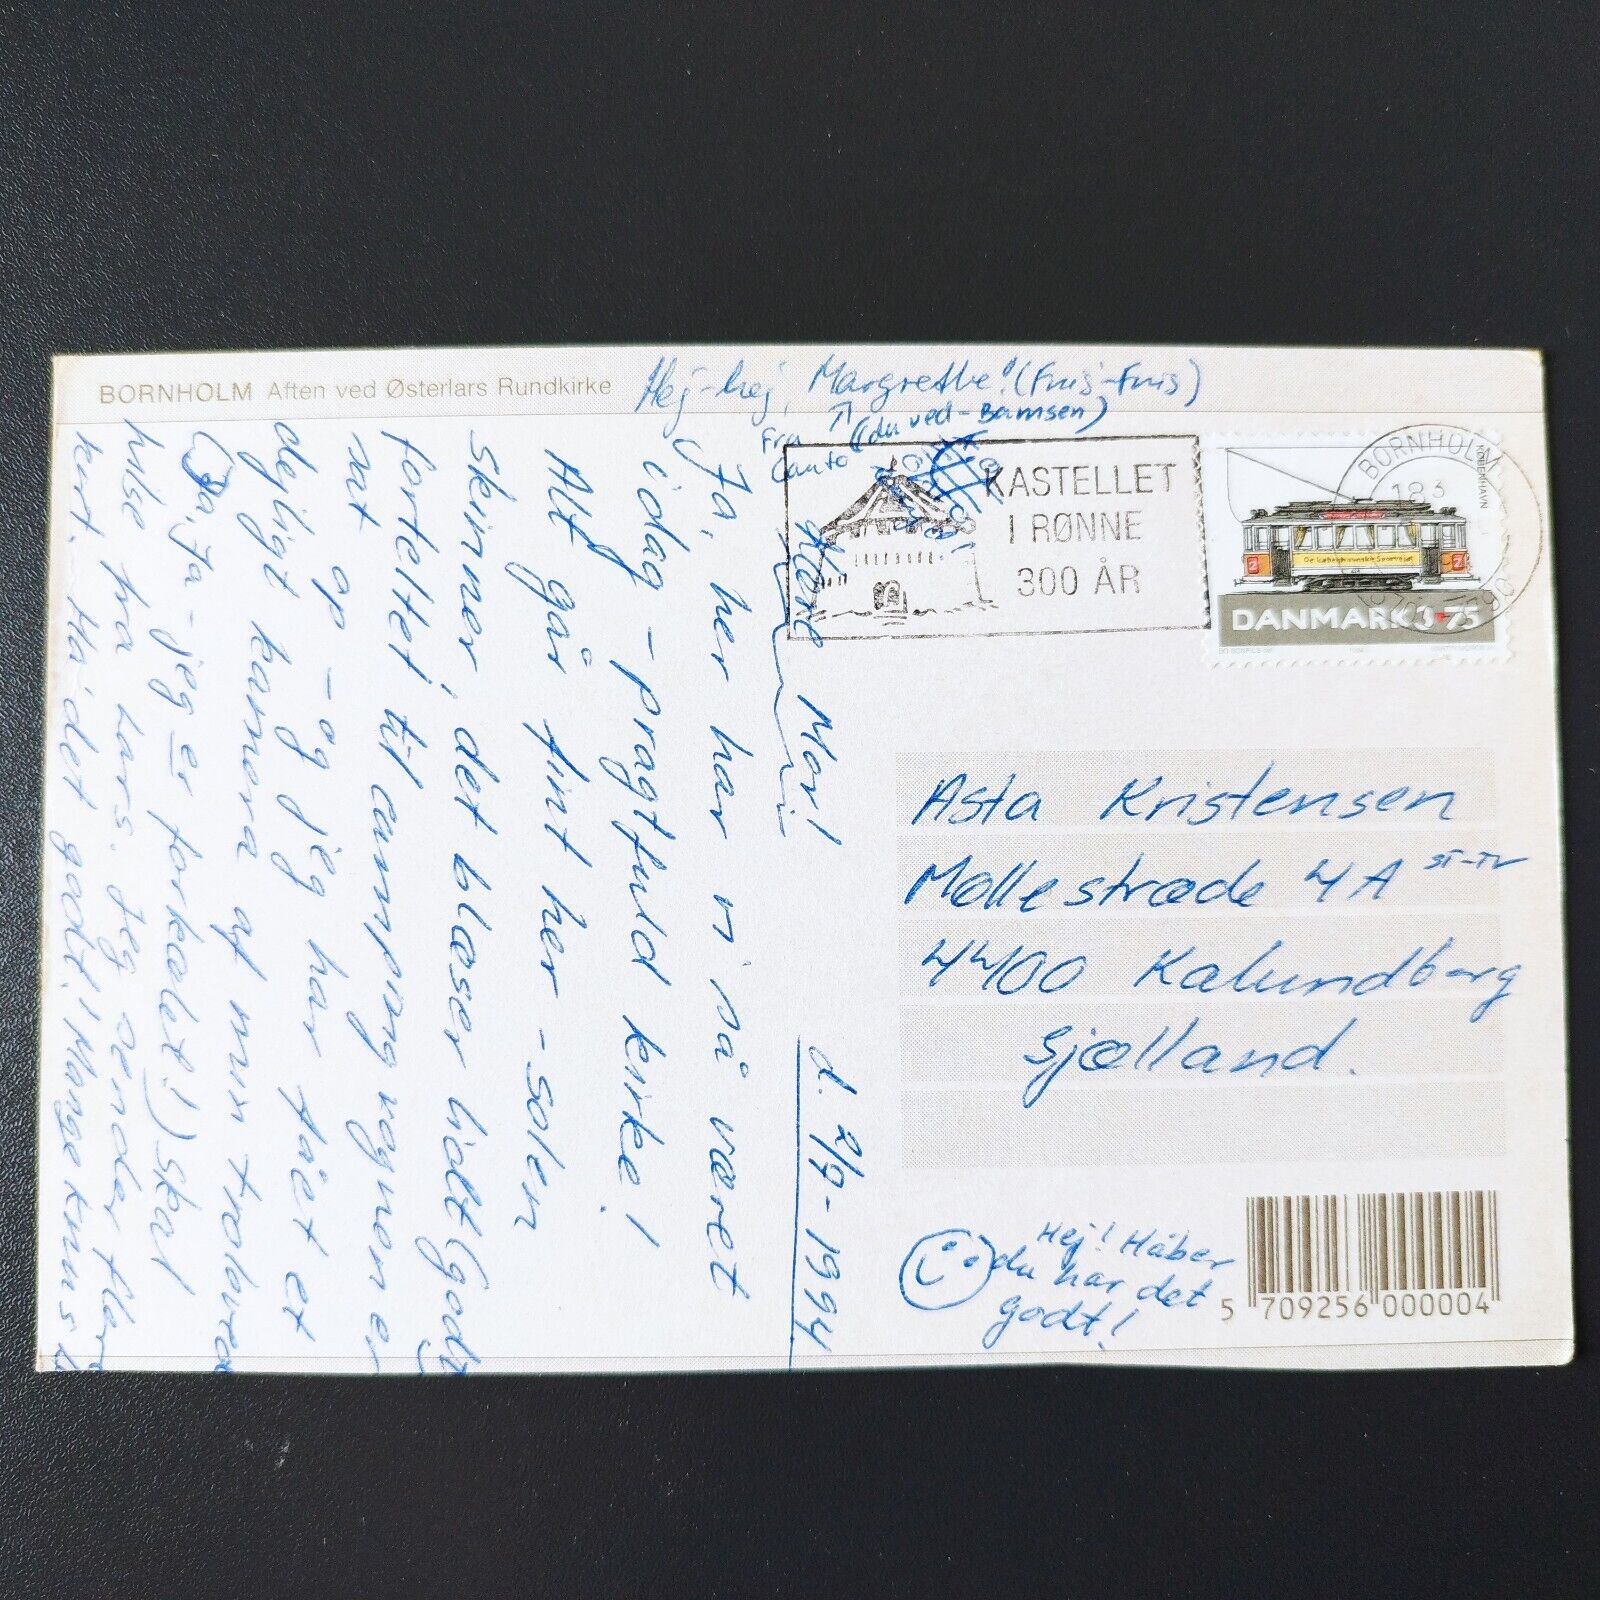 BORNHOLM Aften ved Østerlars Rundkirke
Hej-hej, Margrethe! (Fnis-Fnis)
Fra (du ved - Bamsen)
KASTELLET
I RØNNE
300 ÅR
BORNHOLM
KØBENHAVN
2
2
DANMARK 3.75
d. 2/7-1994
Kære Mor!
Ja, her har vi så været
idag - pragtfuld kirke!
Alt går fint her - solen
skinner, det blæser lidt (godt
forteltet til campingvognen er
sat op - og jeg har fået et
dejligt kamera af min
(Ja, ja - jeg er forkælet!) skal
hilse fra Lars. Jeg sender flere
kort. Ha' det godt! Mange knus
Asta Kristensen
Møllestræde 4A ST-TV
4400 Kalundborg
Sjælland.
Hej! Håber
du har det
godt!
5 709256 000004